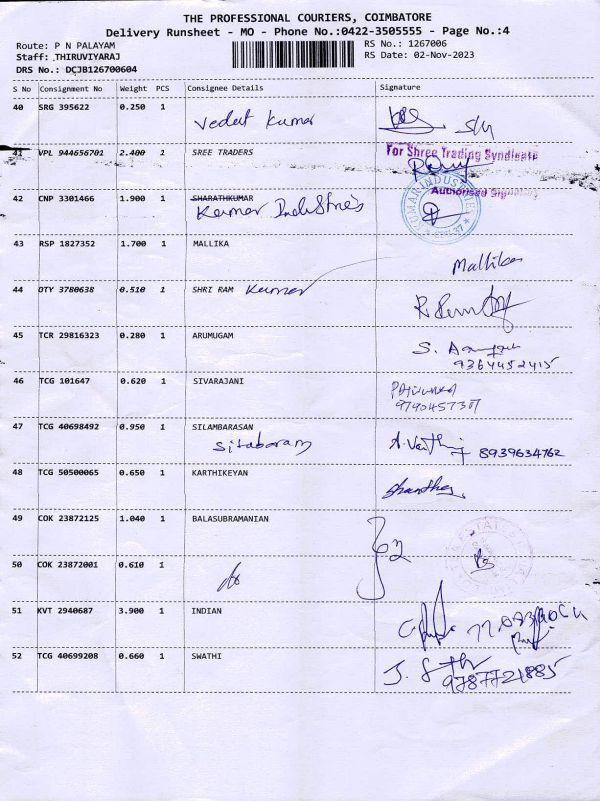 THE PROFESSIONAL COURIERS, COIMBATORE
Delivery Runsheet - MO - Phone No.:0422-3505555 - Page No.:4
Route: P N PALAYAM RS No.: 1267006
Staff: THIRUVIYARAJ RS Date: 02-Nov-2023
DRS No.: DCJB126700604
S No Consignment No Weight PCS Consignee Details Signature
40 SRG 395622 0.250 1
Vedut Kumar
41 VPL 944656701 2.400 1 SREE TRADERS For Shree Trading Syndicate
Authorised
42 CNP 3301466 1.900 1 SHARATHKUMAR
Kumar Industries KUMAR INDUSTRIES
43 RSP 1827352 1.700 1 MALLIKA
Mallika
44 OTY 3780638 0.510 1 SHRI RAM Kumar
45 TCR 29816323 0.280 1 ARUMUGAM
S.
9364452415
46 TCG 101647 0.620 1 SIVARAJANI
47 TCG 40698492 0.950 1 SILAMBARASAN
Sitabaram 8939634762
48 TCG 50500065 0.650 1 KARTHIKEYAN
49 COK 23872125 1.040 1 BALASUBRAMANIAN
50 COK 23872001 0.610 1
51 KVT 2940687 3.900 1 INDIAN
52 TCG 40699208 0.660 1 SWATHI
9787721885